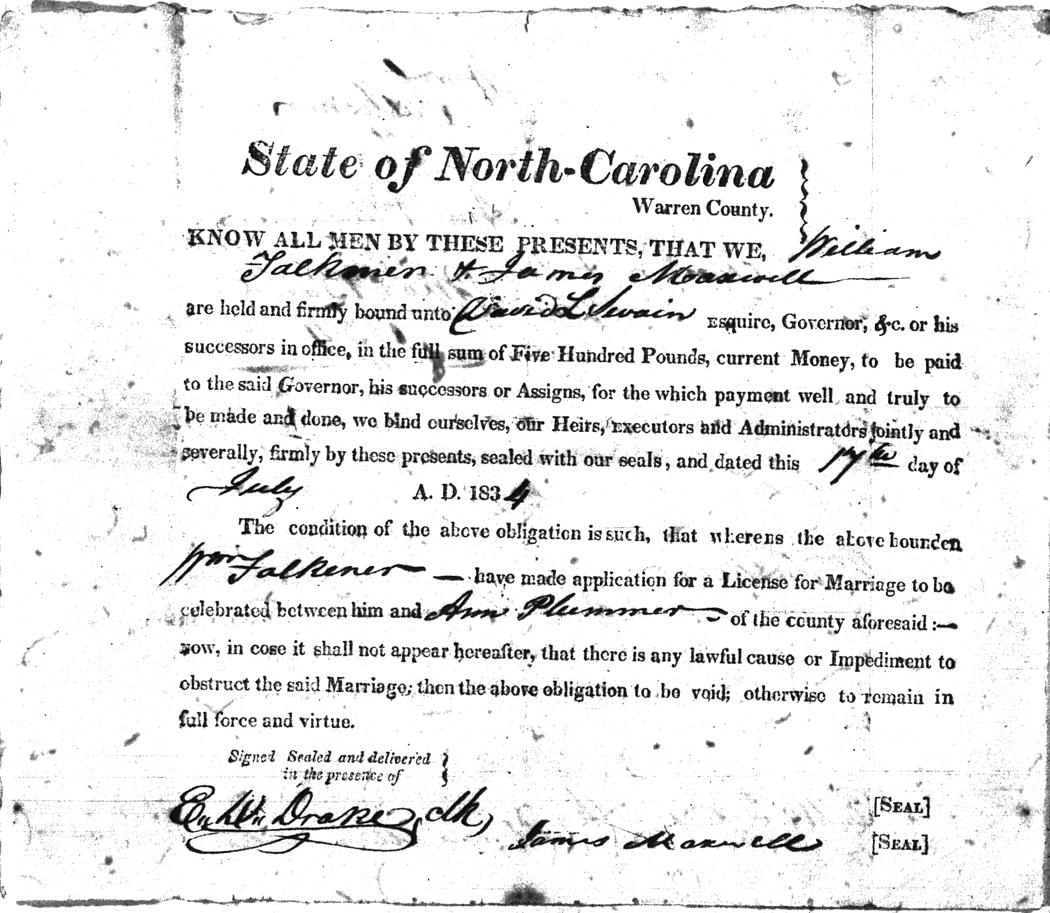 State of North-Carolina
Warren County.
KNOW ALL MEN BY THESE PRESENTS, THAT WE, William
Falkener & James Maxwell
are held and firmly bound unto David L Swain Esquire, Governor, &c. or his
successors in office, in the full sum of Five Hundred Pounds, current Money, to be paid
to the said Governor, his successors or Assigns, for the which payment well and truly to
be made and done, we bind ourselves, our Heirs, Executors and Administrators jointly and
severally, firmly by these presents, sealed with our seals, and dated this day of
July A. D. 1834
The condition of the above obligation is such, that whereas the above bounden
Wm Falkener — have made application for a License for Marriage to be
celebrated between him and Ann Plummer — of the county aforesaid :—
now, in case it shall not appear hereafter, that there is any lawful cause or Impediment to
obstruct the said Marriage; then the above obligation to be void; otherwise to remain in
full force and virtue.
Signed Sealed and delivered
in the presence of
Drake, clk, [SEAL]
James Maxwell [SEAL]